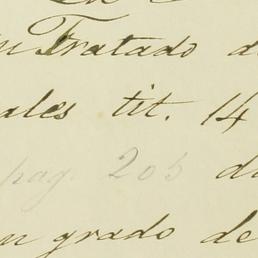 Tratado d
ales tit. 14
pag. 205 da
un grado de